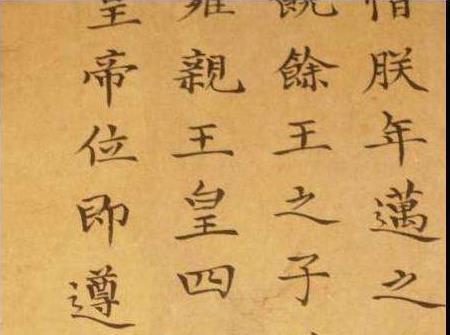 惜朕年邁之
饒餘王之子
雍親王皇四
皇帝位即遵